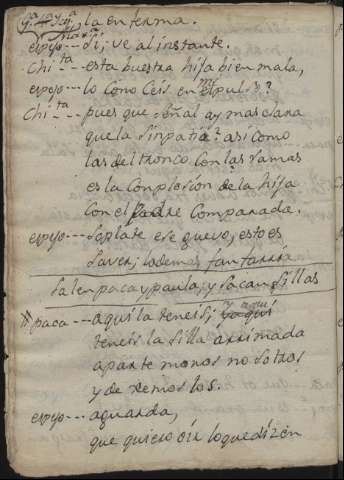 la enferma.
espejo--- si, ve al instante.
Chi_ta--- esta buestra hija bien mala,
espejo--- lo conoceis en el pulso?
Chi_ta--- pues que señal ay mas clara
que la sinpatia? asi como
las del tronco con las ramas
es la conplesion de la hija
con el padre comparada.
espejo--- soplate ese guevo, esto es
saver, lo demas fantarria
salen paca y paula; y sacan sillas
paca--- aqui la teneis; y aqui
teneis la silla arrimada
apartemonos nosotros
y dexemoslos.
espejo--- aguarda,
que quiero oir lo que dizen